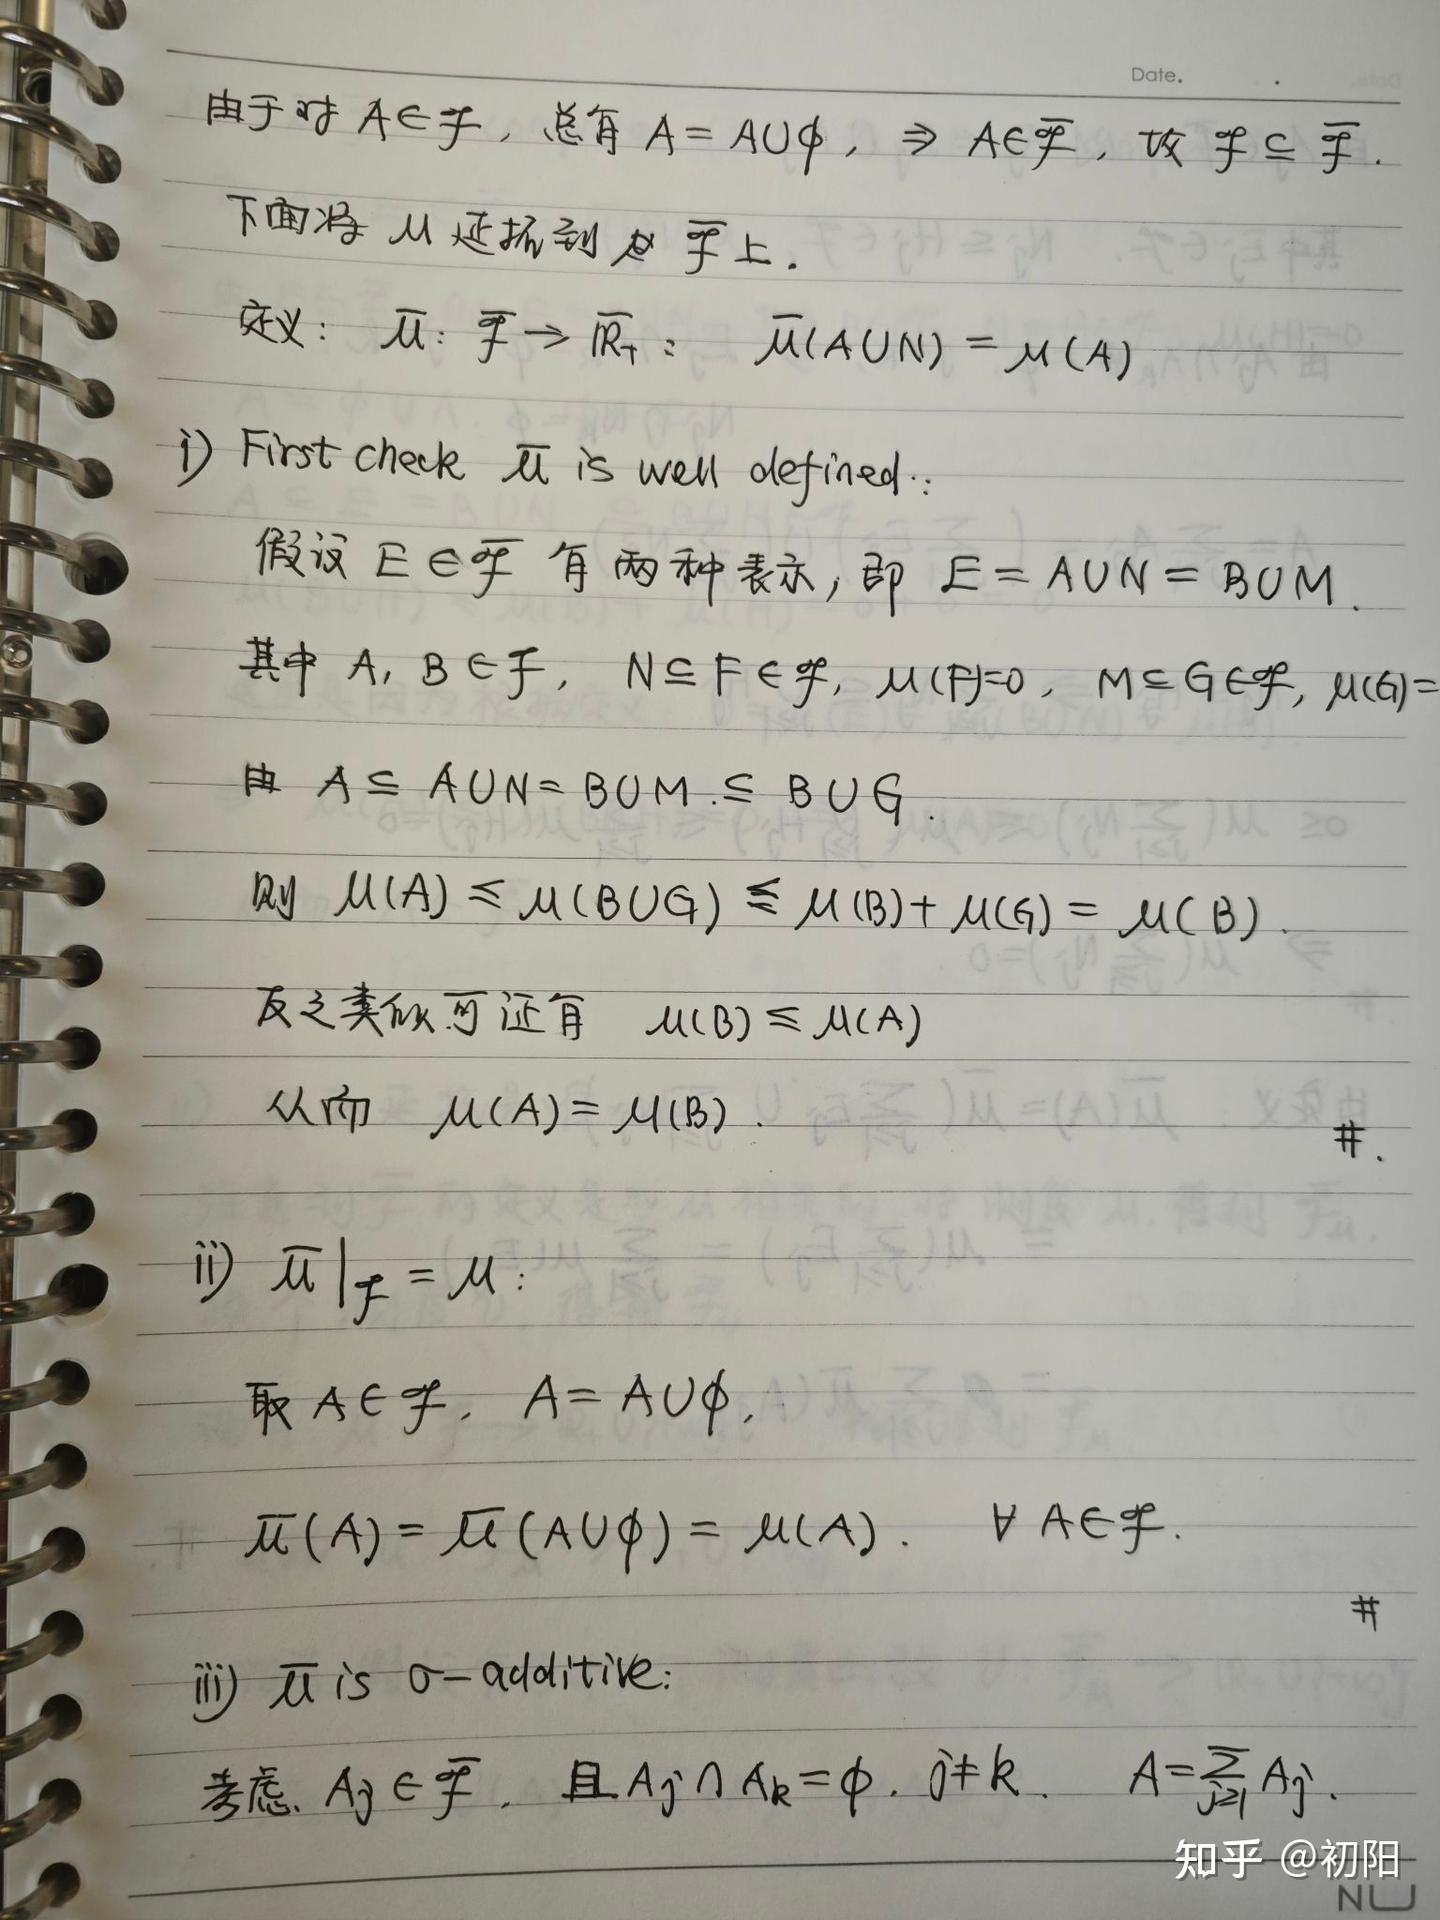 Date. .
由于对 A∈ℱ, 总有 A = A∪ϕ, ⇒ A∈ℱ̅, 故 ℱ ⊆ ℱ̅.
下面将 μ 延拓到 ℱ̅ 上.
定义: μ̅: ℱ̅ → ℝ̅₊: μ̅(A∪N) = μ(A)
i) First check μ̅ is well defined:
假设 E∈ℱ̅ 有两种表示, 即 E = A∪N = B∪M.
其中 A, B∈ℱ, N⊆F∈ℱ, μ(F)=0, M⊆G∈ℱ, μ(G)=
由 A ⊆ A∪N = B∪M ⊆ B∪G.
则 μ(A) ≤ μ(B∪G) ≤ μ(B)+μ(G) = μ(B).
反之类似可证有 μ(B) ≤ μ(A)
从而 μ(A) = μ(B).
#.
ii) μ̅|ℱ = μ:
取 A∈ℱ, A = A∪ϕ,
μ̅(A) = μ̅(A∪ϕ) = μ(A). ∀ A∈ℱ.
#
iii) μ̅ is σ-additive:
考虑 Aj∈ℱ̅, 且 Aj∩Ak = ϕ, j≠k. A = ∑j≥1 Aj.
知乎 @初阳
NU